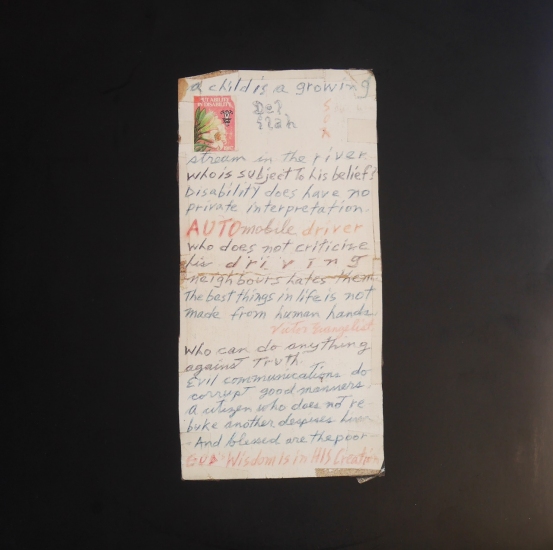 a child is a growing
ABILITY
IN DISABILITY
stream in the river
who is subject to his belief?
Disability does have no
private interpretation.
AUTOmobile driver
who does not criticize
his driving
neighbours hates them
The best things in life is not
made from human hands.
Victor Evangelist
Who can do anything
against truth.
Evil communications do
corrupt good manners.
A citizen who does not re-
buke another despises him
And blessed are the poor
Wisdom is in HIS Creat